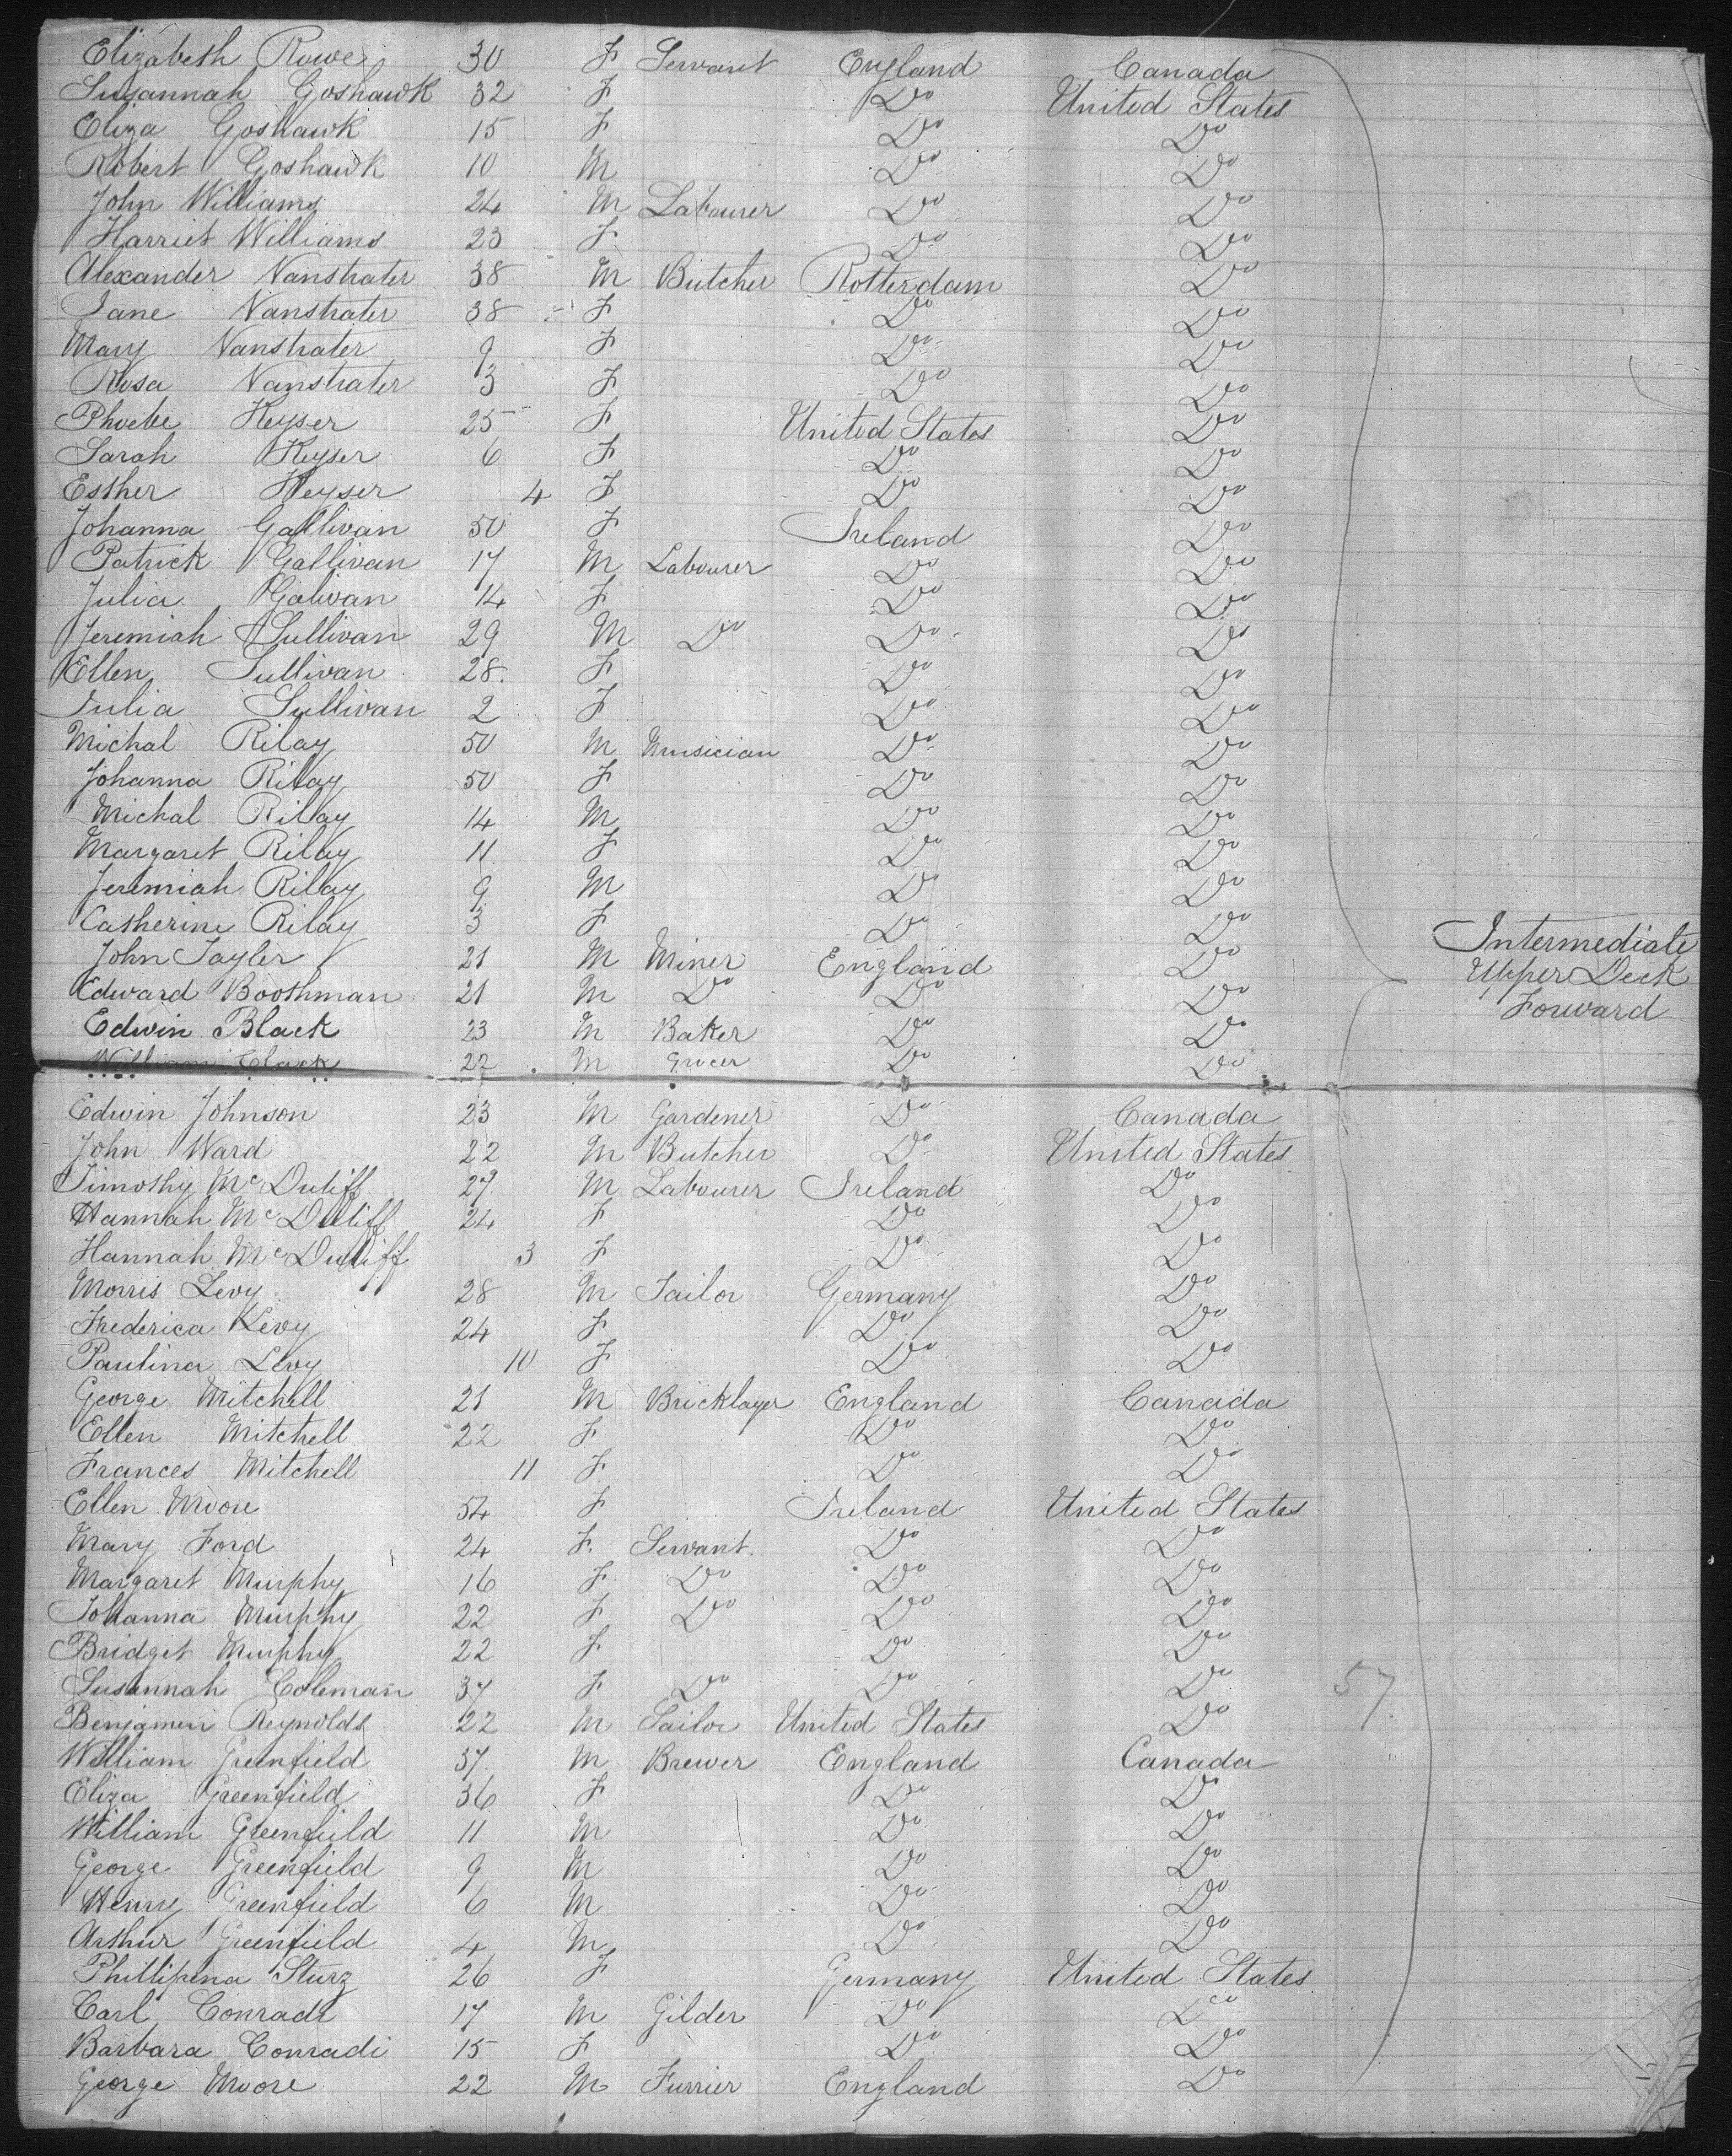 Elizabeth Rowe 30 F Servant England Canada
Susannah Goshawk 32 F Do United States
Eliza Goshawk 15 F Do Do
Robert Goshawk 10 M Do Do
John Williams 24 M Labourer Do Do
Harriet Williams 23 F Do Do
Alexander Vanstrater 38 M Butcher Rotterdam Do
Jane Vanstrater 38 F Do Do
Mary Vanstrater 9 F Do Do
Rosa Vanstrater 3 F Do Do
Phoebe Keyser 25 F United States Do
Sarah Keyser 6 F Do Do
Esther Keyser 4 F Do Do
Johanna Gallivan 50 F Ireland Do
Patrick Gallivan 17 M Labourer Do Do
Julia Galivan 14 F Do Do
Jeremiah Sullivan 29 M Do Do Do
Ellen Sullivan 28 F Do Do
Julia Sullivan 2 F Do Do
Michal Rilay 50 M Musician Do Do
Johanna Rilay 50 F Do Do
Michal Rilay 14 M Do Do
Margaret Rilay 11 F Do Do
Jeremiah Rilay 9 M Do Do
Catherine Rilay 3 F Do Do
John Tayler 21 M Miner England Do
Edward Boothman 21 M Do Do Do
Edwin Black 23 M Baker Do Do
William Clack 22 M Grocer Do Do
Intermediate
Upper Deck
Forward
Edwin Johnson 23 M Gardener Do Canada
John Ward 22 M Butcher Do United States
Timothy McDuliff 27 M Labourer Ireland Do
Hannah McDuliff 24 F Do Do
Hannah McDuliff 3 F Do Do
Morris Levy 28 M Tailor Germany Do
Frederica Levy 24 F Do Do
Paulina Levy 10 F Do Do
George Mitchell 21 M Bricklayer England Canada
Ellen Mitchell 22 F Do Do
Frances Mitchell 11 F Do Do
Ellen Moore 54 F Ireland United States
Mary Ford 24 F Servant Do Do
Margaret Murphy 16 F Do Do Do
Johanna Murphy 22 F Do Do Do
Bridget Murphy 22 F Do Do
Susannah Coleman 37 F Do Do Do 57
Benjamin Reynolds 22 M Sailor United States Do
William Greenfield 37 M Brewer England Canada
Eliza Greenfield 36 F Do Do
William Greenfield 11 M Do Do
George Greenfield 9 M Do Do
Henry Greenfield 6 M Do Do
Arthur Greenfield 4 M Do Do
Phillipena Sturz 26 F Germany United States
Carl Conradi 17 M Gilder Do Do
Barbara Conradi 15 F Do Do
George Moore 22 M Furrier England Do